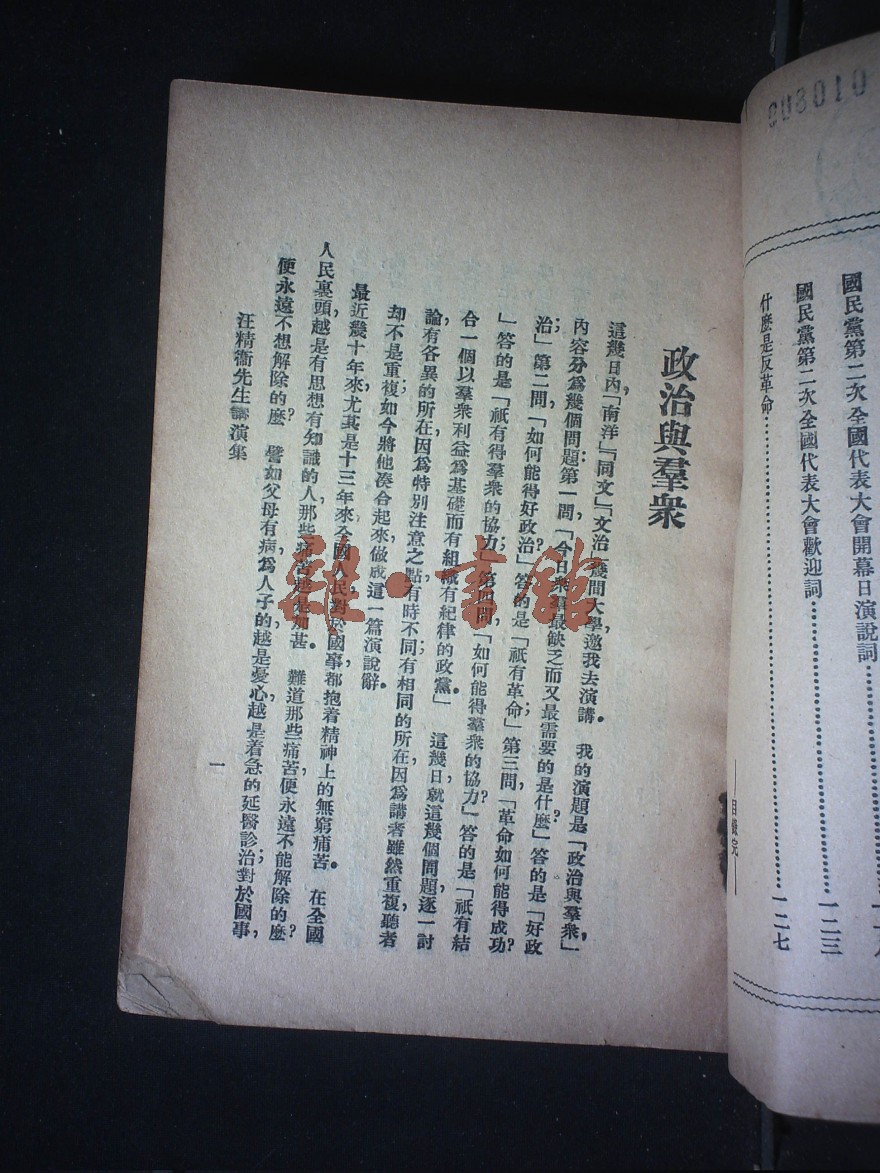 010800
國民黨第二次全國代表大會開幕日演說詞
國民黨第二次全國代表大會歡迎詞 一二三
什麼是反革命 一二七
政治與羣衆
這幾日內，「南洋」「同文」「文治」幾間大學，邀我去演講。　我的演題是「政治與羣衆」，
內容分爲幾個問題：第一問，「今日衆羣最缺乏而又最需要的是什麼？」答的是「好政
治」；第二問，「如何能得好政治？」答的是「祇有革命」；第三問，「革命如何能得成功？
」答的是「祇有得羣衆的協力」；第四問，「如何能得羣衆的協力？」答的是「祇有結
合一個以羣衆利益爲基礎而有組織有紀律的政黨。」　這幾日就這幾個問題，逐一討
論，有各異的所在，因爲特別注意之點有時不同；有相同的所在，因爲講者雖然重複，聽者
却不是重複；如今將他湊合起來，做成這一篇演說辭。
最近幾十年來，尤其是十三年來，全國人民，對於國事，都抱着精神上的無窮痛苦。　在全國
人民裏頭，越是有思想有知識的人，那些痛苦越是加甚。　難道那些痛苦，便永遠不能解除的麼？
便永遠不想解除的麼？　譬如父母有病，爲人子的，越是憂心，越是着急的延醫診治；對於國事，
汪精衞先生講演集
一
雜·書館